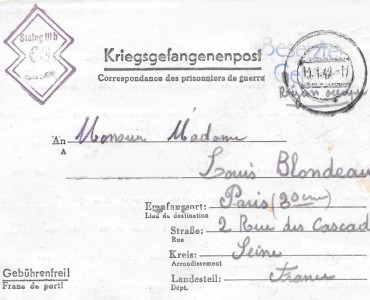 Stalag III b
63
Kriegsgefangenenpost
Correspondance des prisonniers de guerre
An Monsieur Madame
A
Louis Blondeau
Empfangsort: Paris (20eme)
Lieu de destination
Straße: 2 Rue des Cascad
Rue
Kreis: Seine
Arrondissement
Gebührenfrei!
Franc de port!
Landesteil: France
Dépt.